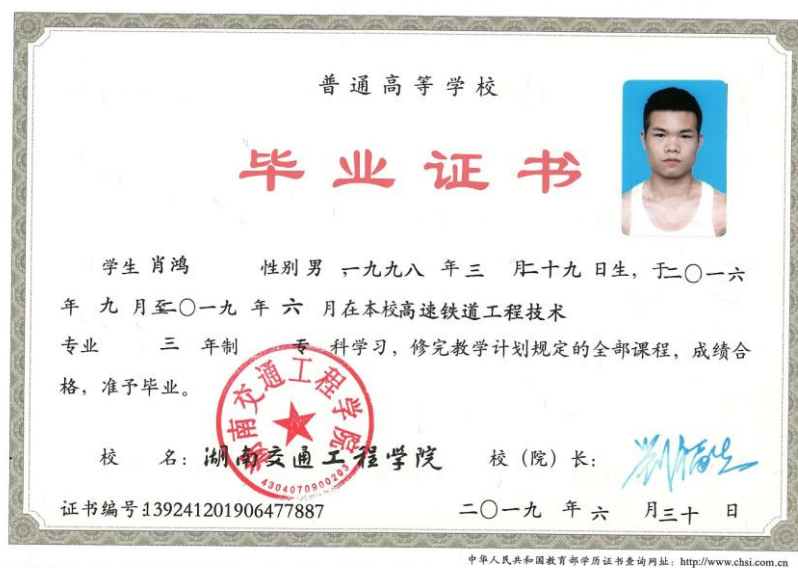 普通高等学校
毕业证书
学生 肖鸿 性别 男 一九九八 年 三 月 二十九 日生，于 二〇一六
年 九 月至 二〇一九 年 六 月在本校 高速铁道工程技术
专业 三 年制 专 科学习，修完教学计划规定的全部课程，成绩合
格，准予毕业。
湖南交通工程学院
4304070900203
校 名：湖南交通工程学院 校（院）长：
证书编号：139241201906477887 二〇一九 年 六 月 三十 日
中华人民共和国教育部学历证书查询网址：http://www.chsi.com.cn